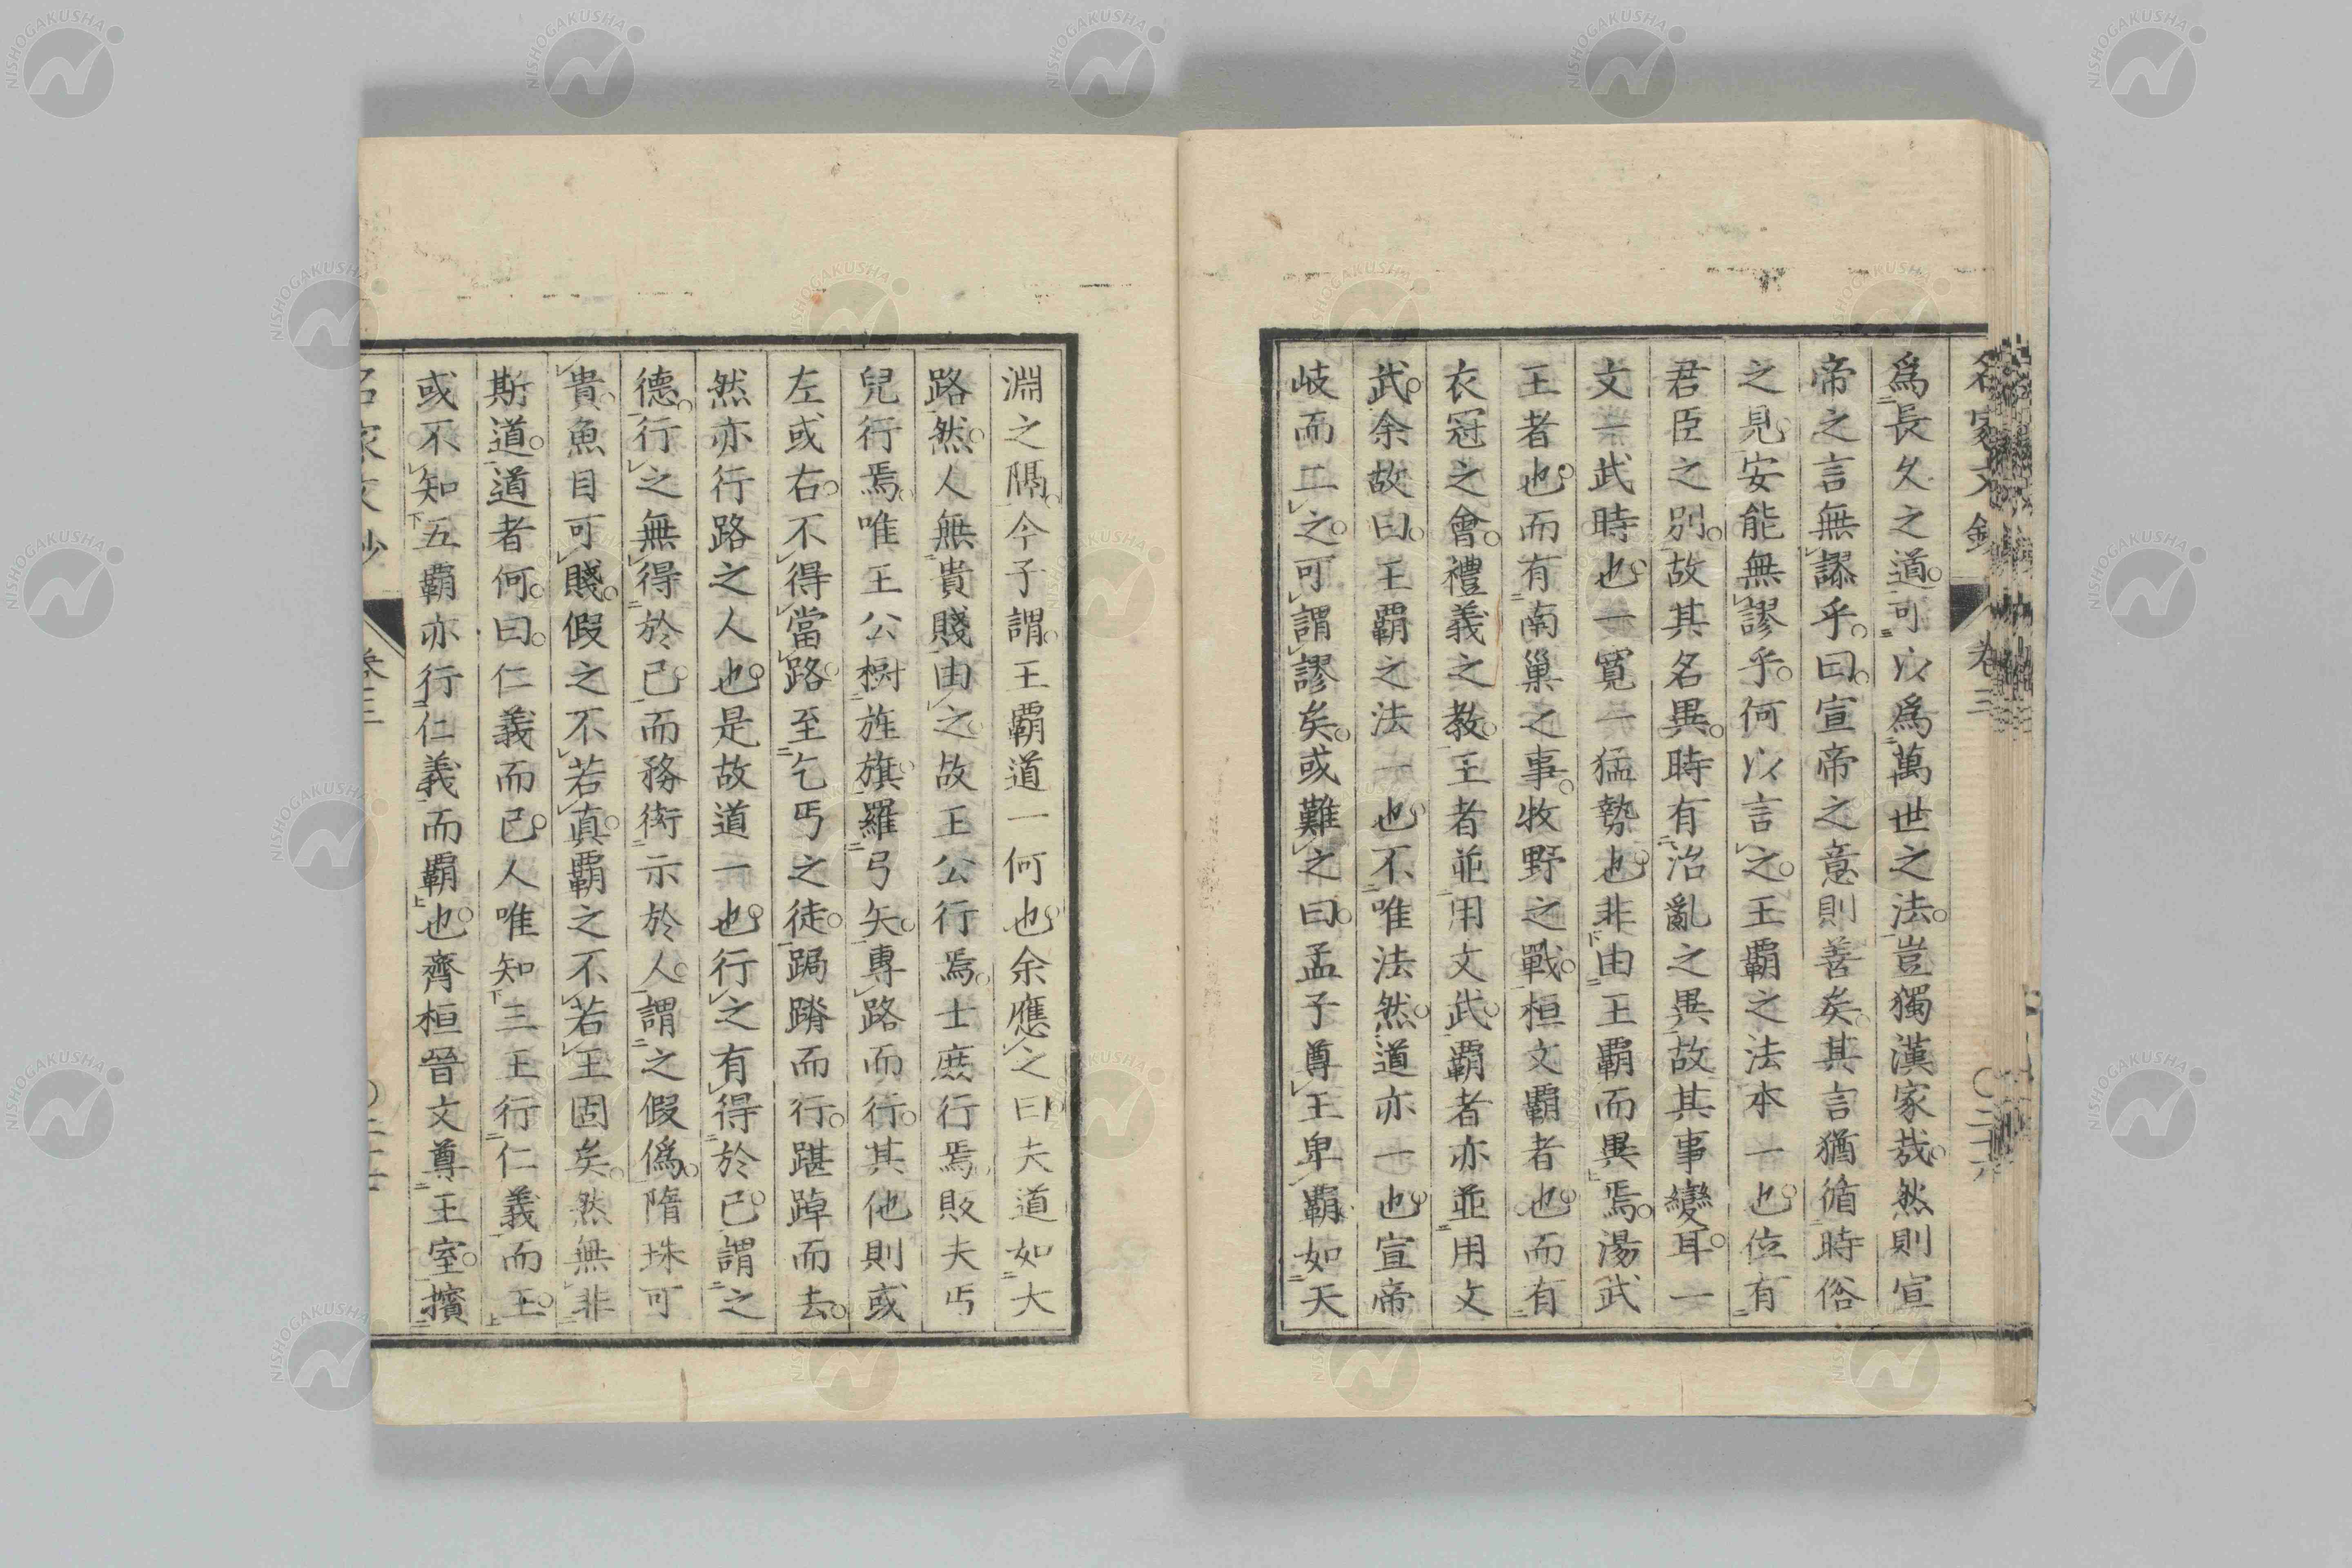 名家文鈔 卷三 〇二十六
爲長久之道可以爲萬世之法豈獨漢家哉然則宣
帝之言無謬乎曰宣帝之意則善矣其言猶循時俗
之見安能無謬乎何以言之王覇之法本一也位有
君臣之別故其名異時有治亂之異故其事變耳一
文一武時也一寬一猛勢也非由王覇而異焉湯武
王者也而有南巢之事牧野之戰桓文覇者也而有
衣冠之會禮義之教王者並用文武覇者亦並用文
武余故曰王覇之法一也不唯法然道亦一也宣帝
岐而二之可謂謬矣或難之曰孟子尊王卑覇如天
淵之隔今子謂王覇道一何也余應之曰夫道如大
路然人無貴賤由之故王公行焉士庶行焉販夫丐
兒行焉唯王公樹旌旗羅弓矢專路而行其他則或
左或右不得當路至乞丐之徒跼蹐而行踸踔而去
然亦行路之人也是故道一也行之有得於己謂之
德行之無得於己而務衒示於人謂之假僞隋珠可
貴魚目可賤假之不若真覇之不若王固矣然無非
斯道道者何曰仁義而已人唯知三王行仁義而王
或不知五覇亦行仁義而覇也齊桓晉文尊王室擯
名家文鈔 卷三
NISHOGAKUSHA